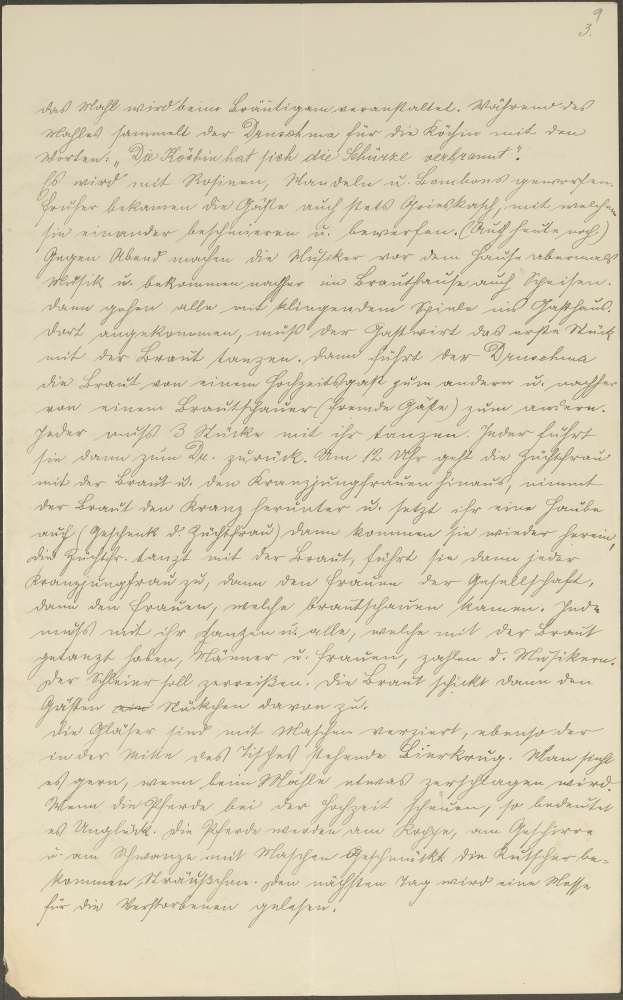 9
3.
das Mahl wird beim Bräutigam veranstaltet. Während des
Mahles sammelt der Druschma für die Köchin mit den
Worten: „Die Köchin hat sich die Schürze verbrannt".
Es wird mit Rosinen, Mandeln u. Bonbons geworfen.
Früher bekamen die Gäste auch stets Grieskasch, mit welchem
sie einander beschmieren u. bewerfen. (Auch heute noch)
Gegen Abend machen die Musiker vor dem Hause abermals
Musik u. bekommen nachher im Brauthause auch Speisen.
dann gehen alle mit klingendem Spiele ins Gasthaus.
Dort angekommen, muß der Gastwirt das erste Stück
mit der Braut tanzen. dann führt der Druschma
die Braut von einem Hochzeitsgast zum andern u. nachher
von einem Brautschauer (fremde Gäste) zum andern.
Jeder muss 3 Stücke mit ihr tanzen. Jeder führt
sie dann zum Dr. zurück. Um 12 Uhr geht die Zuchtfrau
mit der Braut u. den Kranzjungfrauen hinaus, nimmt
der Braut den Kranz herunter u. setzt ihr eine Haube
auf (Geschenk d. Zuchtfrau) dann kommen sie wieder herein,
die Zuchtfr. tanzt mit der Braut, führt sie dann jeder
Kranzjungfrau zu, dann den Frauen der Gesellschaft,
dann den Frauen, welche brautschauen kamen. Jede
muss mit ihr tanzen u. alle, welche mit der Braut
getanzt haben, Männer u. Frauen, zahlen d. Musikern.
Der Schleier soll zerreißen. Die Braut schickt dann den
Gästen ein Stückchen davon zu.
Die Gläser sind mit Maschen verziert, ebenso der
in der Mitte des Tisches stehende Bierkrug. Man sieht
es gern, wenn beim Mahle etwas zerschlagen wird.
Wenn die Pferde bei der Hochzeit scheuen, so bedeutet
es Unglück. Die Pferde werden am Kopfe, am Geschirre
u. am Schwanze mit Maschen geschmückt die Kutscher be-
kommen Sträußchen. Den nächsten Tag wird eine Messe
für die Verstorbenen gelesen.